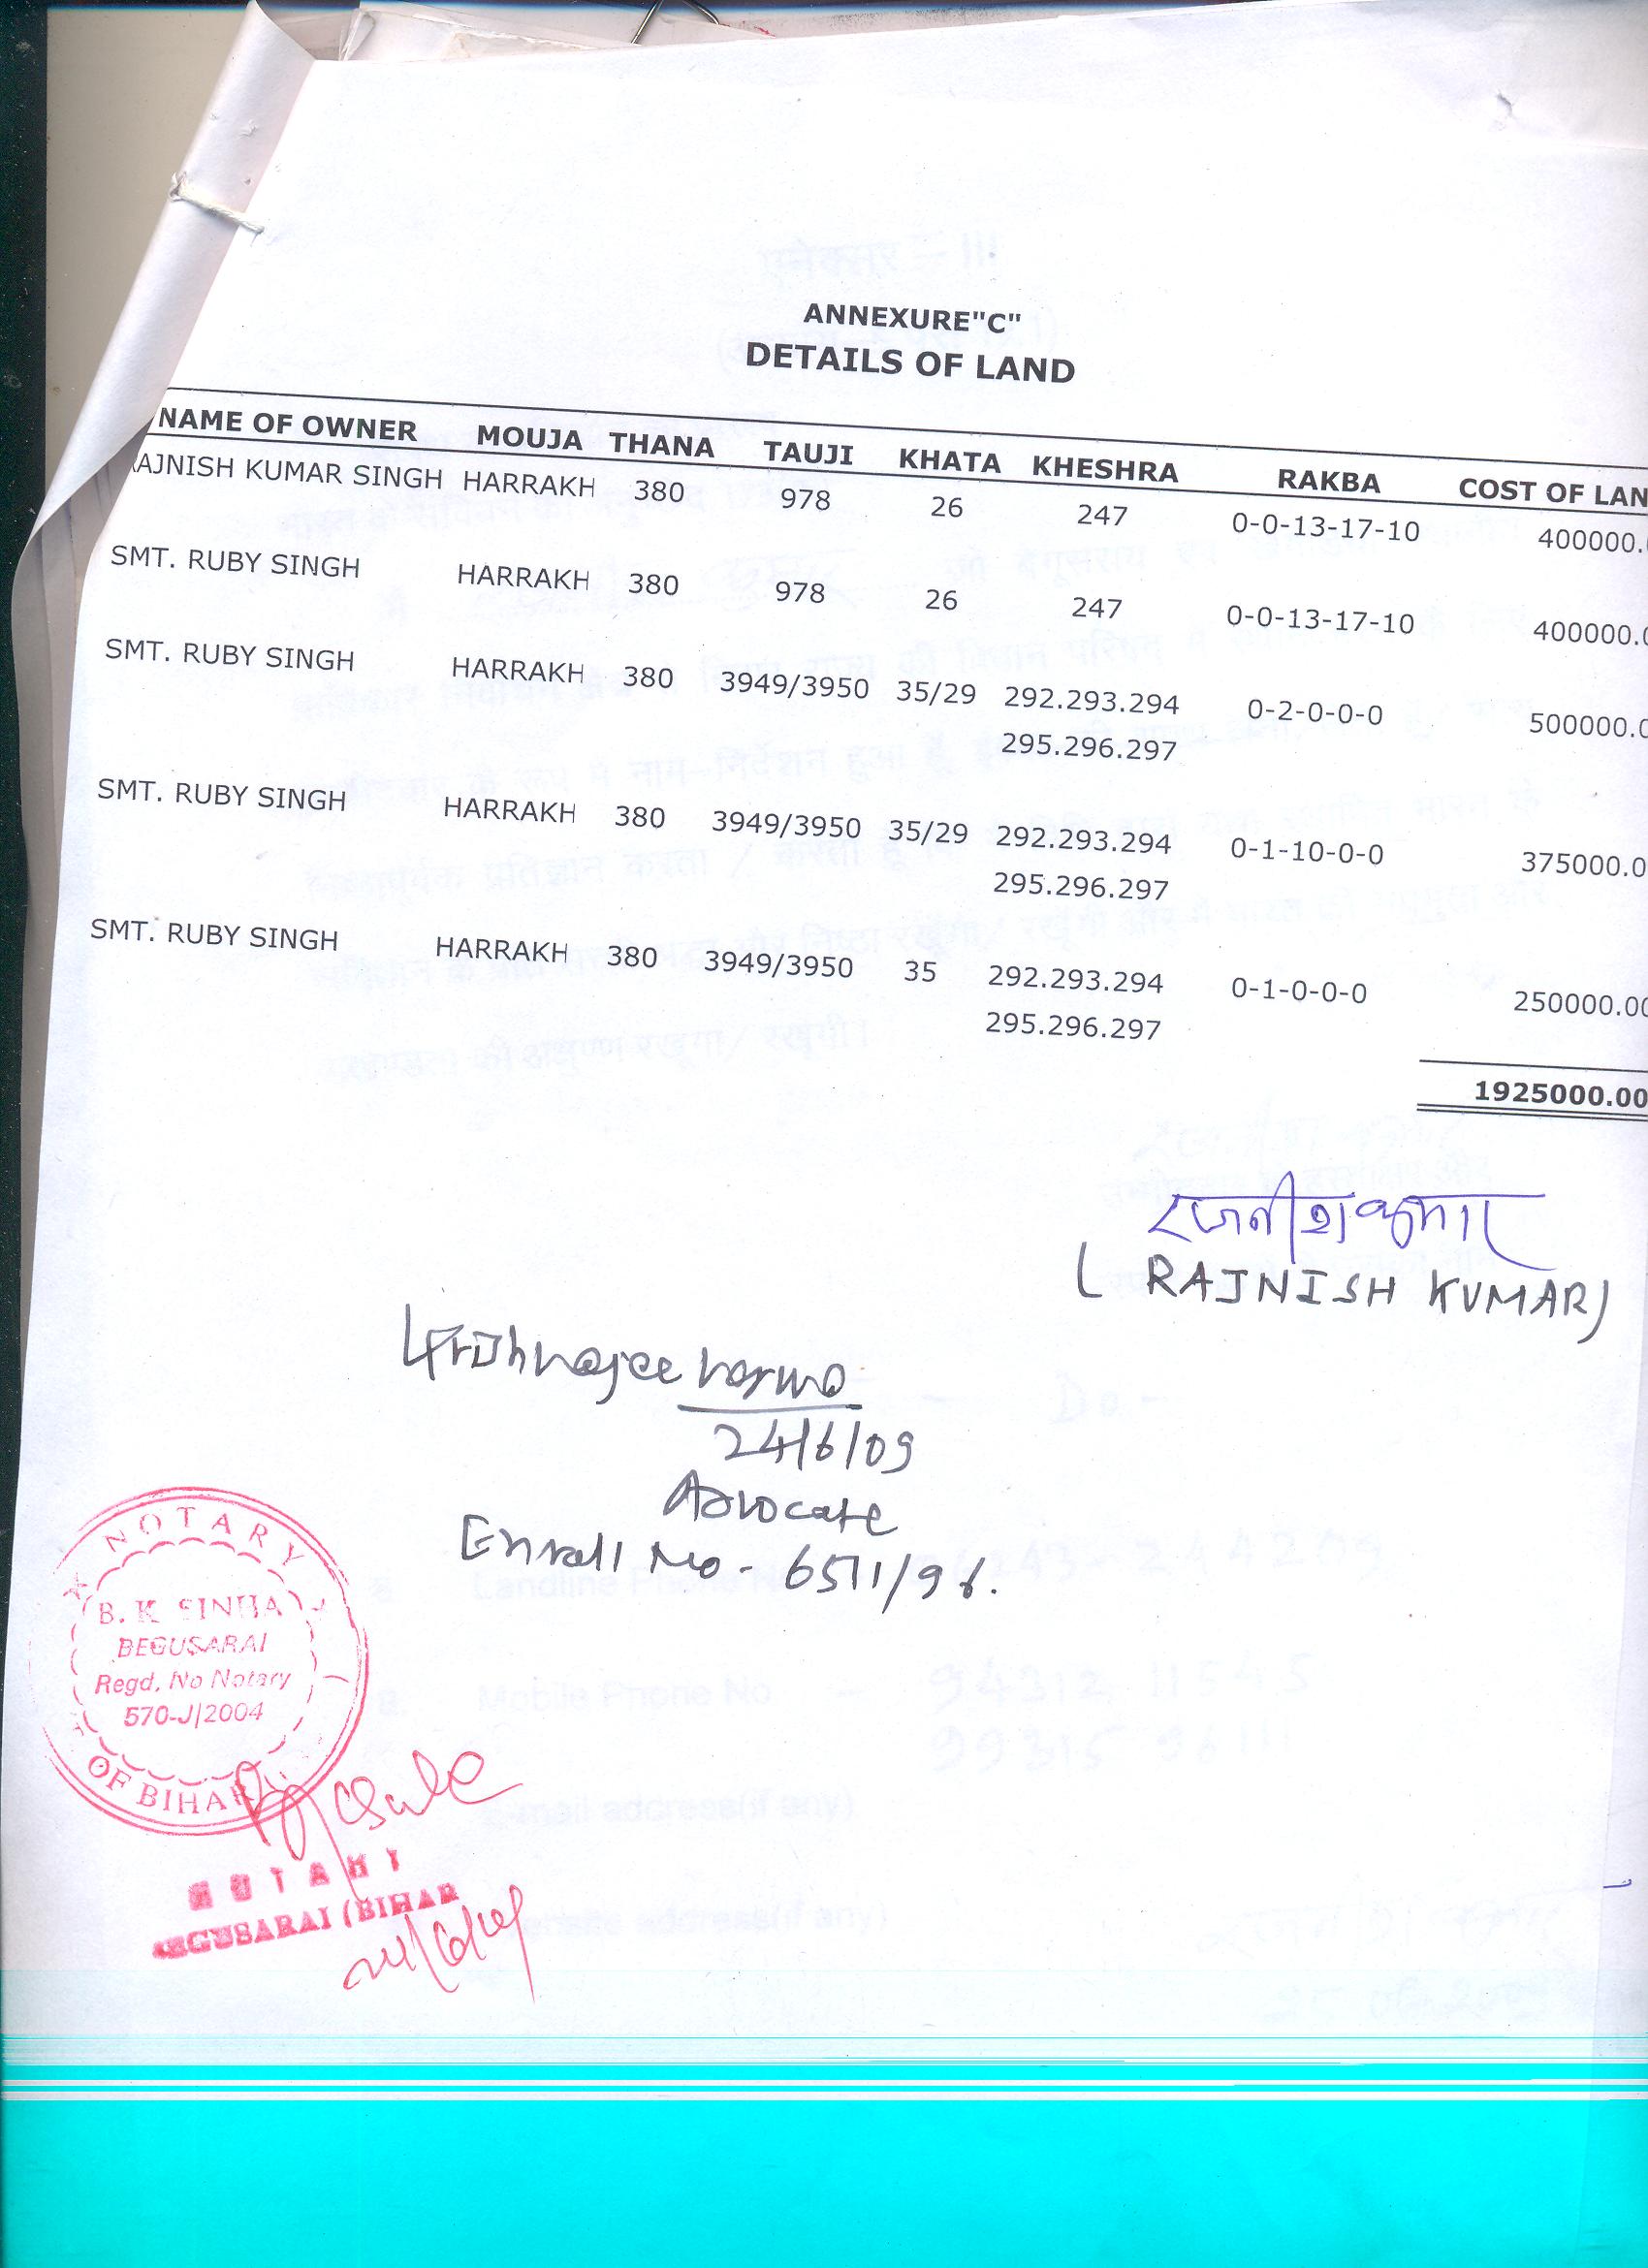 ANNEXURE"C"
DETAILS OF LAND
NAME OF OWNER MOUJA THANA TAUJI KHATA KHESHRA RAKBA COST OF LAN
AJNISH KUMAR SINGH HARRAKH 380 978 26 247 0-0-13-17-10 400000.
SMT. RUBY SINGH HARRAKH 380 978 26 247 0-0-13-17-10 400000.0
SMT. RUBY SINGH HARRAKH 380 3949/3950 35/29 292.293.294 0-2-0-0-0 500000.0
295.296.297
SMT. RUBY SINGH HARRAKH 380 3949/3950 35/29 292.293.294 0-1-10-0-0 375000.0
295.296.297
SMT. RUBY SINGH HARRAKH 380 3949/3950 35 292.293.294 0-1-0-0-0 250000.00
295.296.297
1925000.00
रजनीश कुमार
( RAJNISH KUMAR)
Krishnajee Varma
24/6/09
Advocate
Enroll No- 6511/96.
NOTARY
B. K SINHA
BEGUSARAI
Regd. No Notary
570-J/2004
OF BIHAR
NOTARY
BEGUSARAI (BIHAR